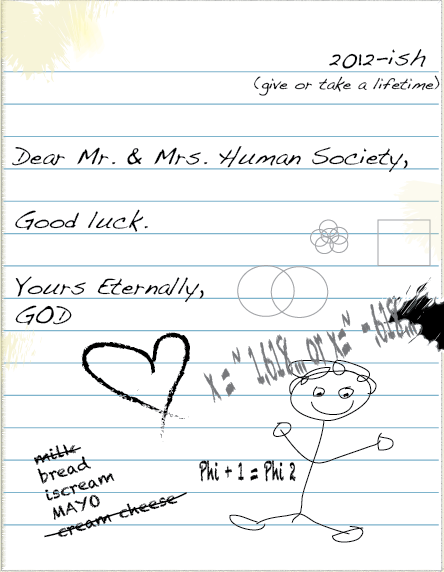 2012-ish
(give or take a lifetime)
Dear Mr. & Mrs. Human Society,
Good luck.
Yours Eternally,
GOD
x = ~ 1.618... or x = ~ -.618...
milk
bread
iscream
MAYO
cream cheese
Phi + 1 = Phi 2